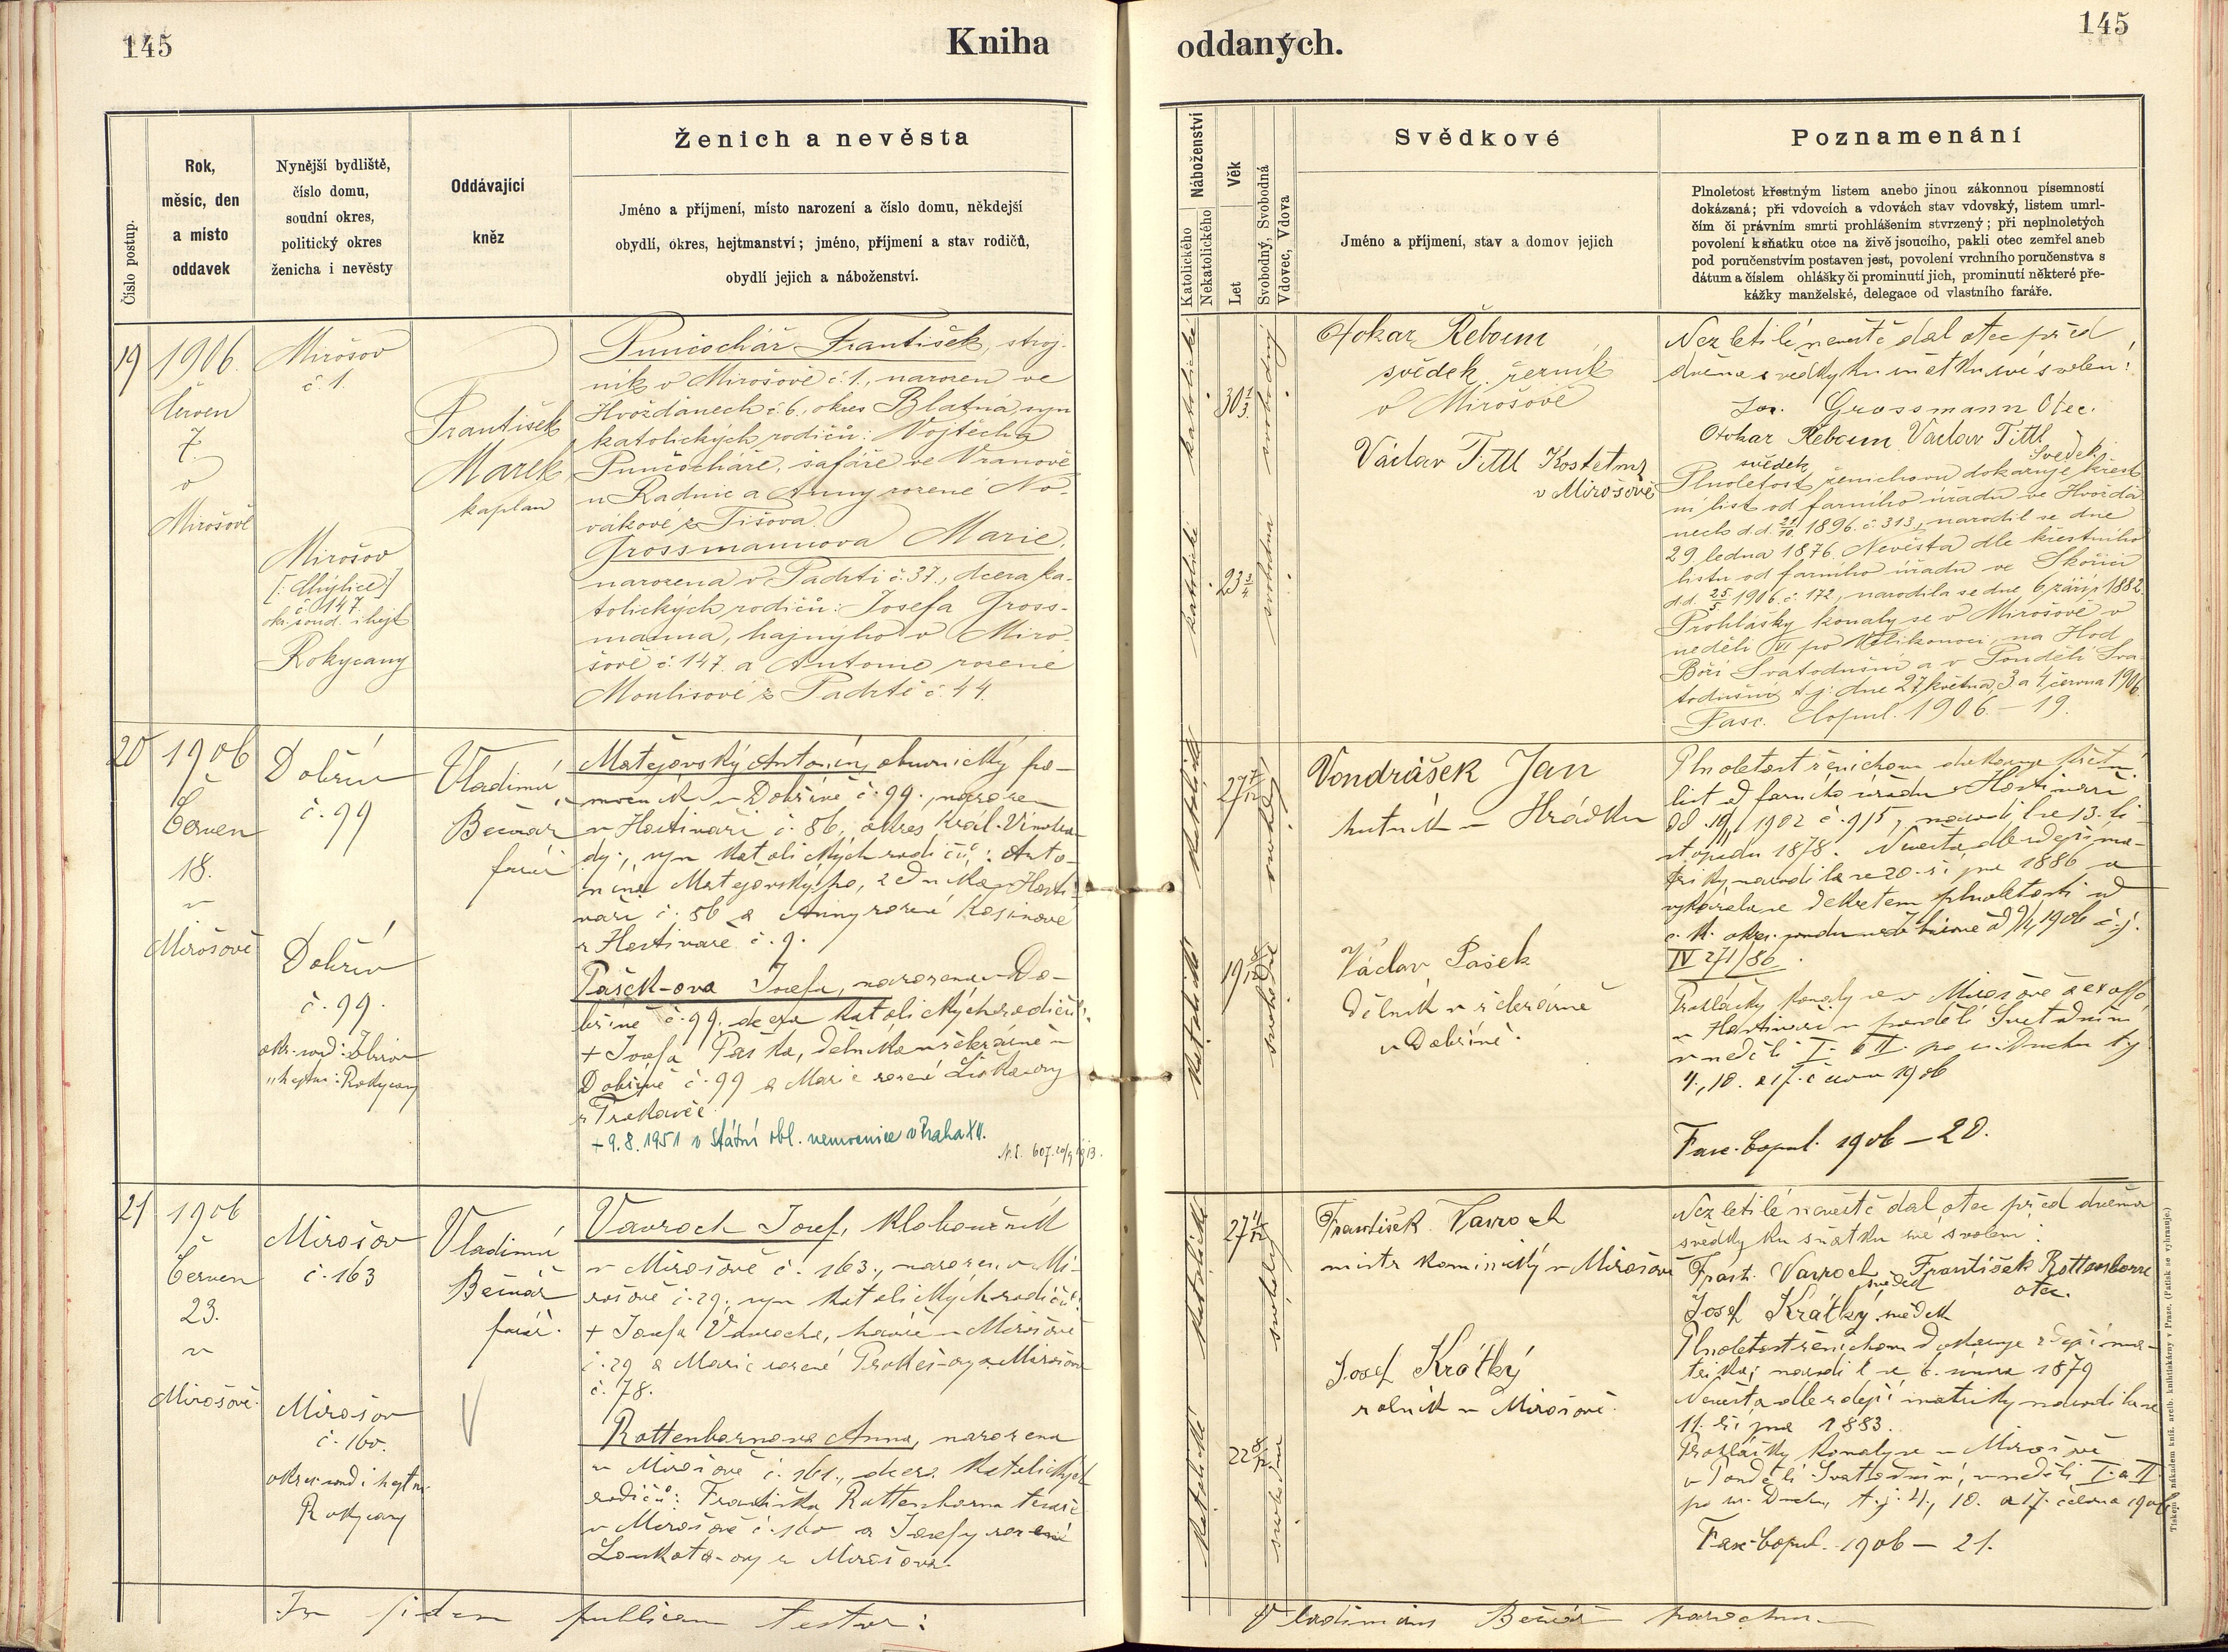 145
Kniha
oddaných.
145
Číslo postup.
Rok,
měsíc, den
a místo
oddavek
Nynější bydliště,
číslo domu,
soudní okres,
politický okres
ženicha i nevěsty
Oddávající
kněz
Ženich a nevěsta
Jméno a příjmení, místo narození a číslo domu, někdejší
obydlí, okres, hejtmanství; jméno, příjmení a stav rodičů,
obydlí jejich a náboženství.
Náboženství
Katolického
Nekatolického
Věk
Let
Svobodný, Svobodná
Vdovec, Vdova
Svědkové
Jméno a příjmení, stav a domov jejich
Poznamenání
Plnoletost křestným listem anebo jinou zákonnou písemností
dokázaná; při vdovcích a vdovách stav vdovský, listem umrl-
čím či právním smrti prohlášením stvrzený; při neplnoletých
povolení k sňatku otce na živě jsoucího, pakli otec zemřel aneb
pod poručenstvím postaven jest, povolení vrchního poručenstva s
dátum a číslem ohlášky či prominutí jich, prominutí některé pře-
kážky manželské, delegace od vlastního faráře.
19
1906
červen
7.
v
Mirošově
Mirošov
č. 1.
Mirošov
č. 147.
okr. soud. i hejt.
Rokycany
František
Marek
kaplan
Punčochář František, stroj-
ník v Mirošově č. 1., narozen ve
Hvožďanech č. 6., okres Blatná, syn
katolických rodičů: Vojtěcha
Punčocháře, šafáře ve Vranově
u Radnic a Anny rozené No-
vákové z Tišova.
Grossmannova Marie,
narozena v Padrti č. 37., dcera ka-
tolických rodičů: Josefa Gross-
manna, hajného v Miro-
šově č. 147. a Antonie rozené
Moulisové z Padrtě č. 44.
katolické
30 1/3
svobodný
katolické
23 3/4
svobodná
Otokar Řeboun
svědek, řezník
v Mirošově
Václav Tittl Kostelník
v Mirošově
Nezletilé nevěstě dal otec před
dvěma svědky ku sňatku své svolení:
Jos. Grossmann Otec.
Otokar Řeboun Václav Tittl
svědek Svědek
Plnoletost ženichovu dokazuje křest-
ní list od farního úřadu ve Hvožďa-
nech d.d. 1896. č. 313, narodil se dne
29. ledna 1876. Nevěsta dle křestního
listu od farního úřadu ve Skořici
d.d. 25/5 1906. č. 172, narodila se dne 6. září 1882.
Prohlášky konaly se v Mirošově v
neděli VI po Velikonoci, na Hod
Boží Svatodušní a v Pondělí Sva-
todušní t. j. dne 27. května, 3. a 4. června 1906.
Fasc. Copul. 1906 — 19.
20
1906
Červen
18.
v
Mirošově
Dobřív
č. 99
Dobřív
č. 99.
okr. soud: Zbirov
„ hejtm: Rokycany
Vladimír
Bečvář
farář
Matějovský Antonín, obuvnický po-
mocník v Dobřívě č. 99., narozen
v Hostivaři č. 86, okres Král. Vinohra-
dy, syn katolických rodičů: Anto-
nína Matějovského, zedníka v Hosti-
vaři č. 86 a Anny rozené Kosinové
z Hostivaře č. 9.
Pašek-ova Josefa, narozena v Do-
břívě č. 99. dcera katolických rodičů:
+ Josefa Paška, dělníka v
Dobřívě č. 99 a Marie rozené Liškaovy
z
+ 9. 8. 1951 v Státní obl. nemocnice v Praha XII.
katolické
27 7/12
svobodný
katolické
19 8/12
svobodná
Vondrášek Jan
hutník v Hrádku
Václav Pašek
dělník v
v Dobřívě.
Plnoletost ženichova dokazuje křestní
list od farního úřadu v Hostivaři
1902 č. 915, narodil se 13. li-
stopadu 1878. Nevěsta dle zdejší ma-
triky narodila se 20. října 1886 a
vykázala se dekretem plnoletosti od
c. k. okr. soudu ve Zbirově 1906 č. j.
IV 271/86.
Prohlášky konaly se v Mirošově a
v Hostivaři v pondělí Svatodušní
v neděli I. a II. po sv. Duchu t. j.
4., 10. a 17. června 1906
Fasc. Copul. 1906 — 20.
21
1906
Červen
23.
v
Mirošově.
Mirošov
č. 163
Mirošov
č. 160.
okres soud i hejtm.
Rokycany
Vladimír
Bečvář
farář.
Vavroch Josef, kloboučník
v Mirošově č. 163., narozen v Mi-
rošově č. 29, syn katolických rodičů:
+ Josefa Vavrocha, havíře v Mirošově
č. 29 a Marie rozené Prokeš-ovy z Mirošova
č. 78.
Rottenbornova Anna, narozena
v Mirošově č. 161., dcera katolických
rodičů: Františka Rottenborna tesaře
v Mirošově č. 160 a Josefy rozené
Loukota-ovy z Mirošova.
katolické
27 4/12
svobodný
katolické
22 8/12
svobodná
František Vavroch
mistr kominický v Mirošově
Josef Krátký
rolník v Mirošově.
Nezletilé nevěstě dal otec před dvěma
svědky ku sňatku své svolení:
Frant. Vavroch František Rottenborn
svědek otec.
Josef Krátký svědek
Plnoletost ženichova dokazuje zdejší ma-
trika; narodil se 6. února 1879
Nevěsta dle zdejší matriky narodila se
11. října 1883.
Prohlášky konaly se v Mirošově
v Pondělí Svatodušní, v neděli I. a II.
po sv. Duchu, t. j. 4., 10. a 17. června 1906
Fasc. Copul. 1906 — 21.
In fidem publicam testor:
Vladimirus Bečvář parochus
Tiskem i nákladem kníž. arcib. knihtiskárny v Praze. (Patisk se vyhrazuje.)